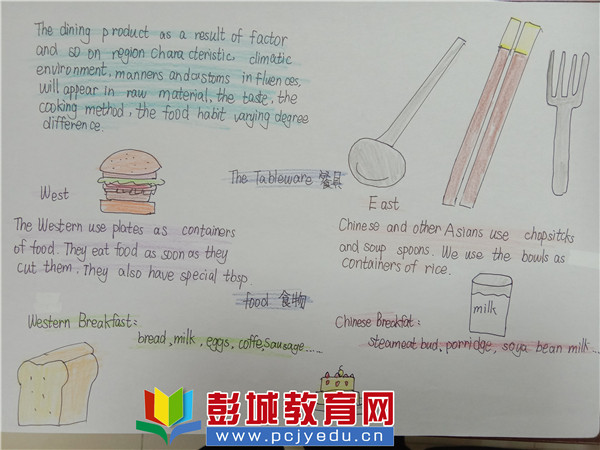 The dining product as a result of factor
and so on region characteristic, climatic
environment, manners andcustoms influences,
will appear in raw material, the taste, the
cooking method, the food habit varying degree
difference.
The Tableware 餐具
West
East
The Western use plates as containers
of food. They eat food as soon as they
cut them. They also have special tbsp
Chinese and other Asians use chopsitcks
and soup spoons. We use the bowls as
containers of rice.
food 食物
milk
Western Breakfast:
bread, milk, eggs, coffe, sausage.....
Chinese Breakfat:
steameat bud, porridge, soya bean milk...
彭城教育网
www.pcjyedu.cn